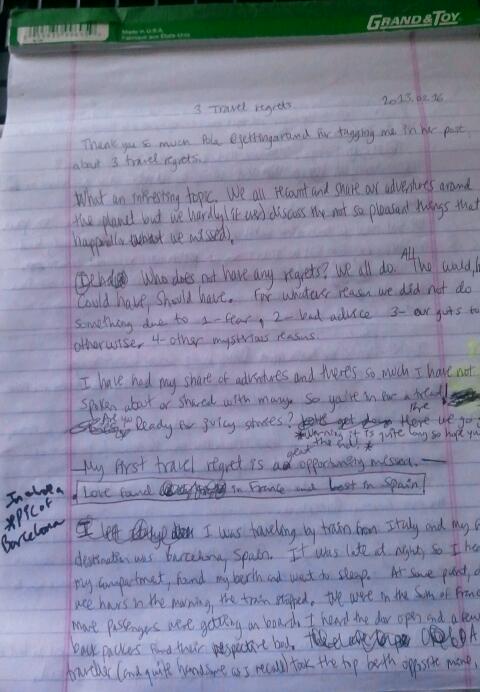 GRAND&TOY
Made in U.S.A.
Fabriqué aux États-Unis
3 Travel regrets
2013.02.16
Thank you so much Pola @jettingaround for tagging me in her post
about 3 travel regrets.
What an interesting topic. We all recount and share our adventures around
the planet but we hardly (if ever) discuss the not so pleasant things that
happened we missed).
Who does not have any regrets? We all do. All The would,
Could have, Should have. For whatever reason we did not do
something due to 1-fear, 2-bad advice 3-our guts
otherwise, 4-other mysterious reasons.
I have had my share of adventures and there's so much I have not
spoken about or shared with many. So you're in for a treat!
Are you Ready for juicy stories? Here we go
*warning it is quite long so hope you
great
My first travel regret is a opportunity missed.
Love found in France and Lost in Spain
Include a
*PIC of
Barcelona
I was traveling by train from Italy and my
destination was Barcelona, Spain. It was late at night, so I
my compartment, found my berth and went to sleep. At some point,
wee hours in the morning, the train stopped. We were in the South of
More passengers were getting on board. I heard the door open and a few
back packers find their respective bed. A
traveller (and quite handsome as I recall) took the top berth opposite mine,